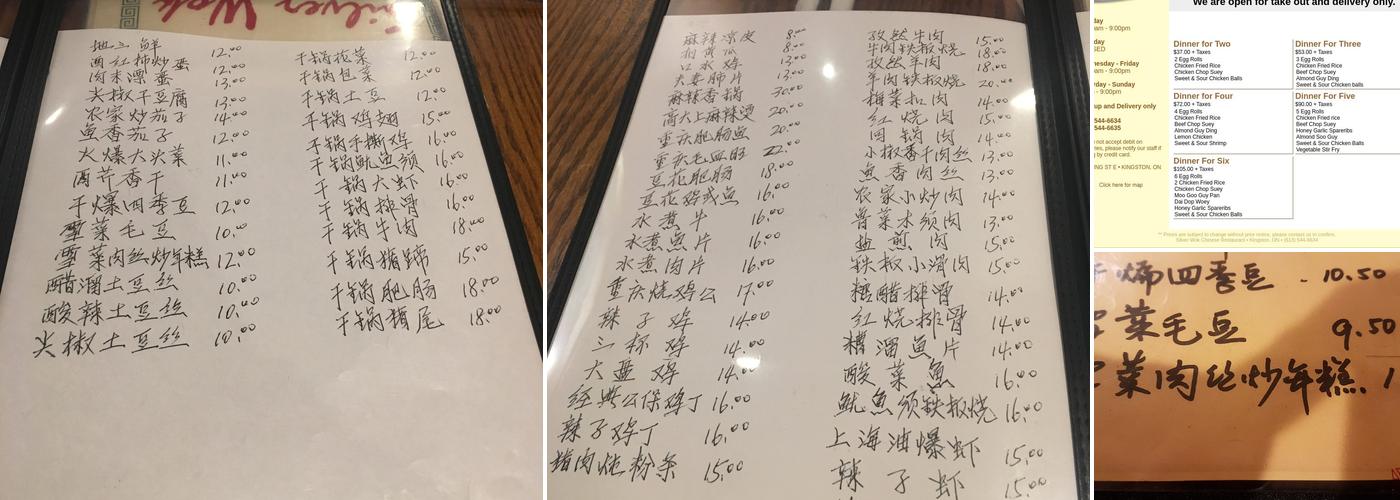 Silver Wok
地三鲜 12.00
西红柿炒蛋 12.00
肉末溜蛋 13.00
尖椒干豆腐 13.00
农家炒茄子 14.00
鱼香茄子 12.00
火爆大头菜 11.00
西芹香干 11.00
干煸四季豆 12.00
雪菜毛豆 10.00
雪菜肉丝炒年糕 12.00
醋溜土豆丝 10.00
酸辣土豆丝 10.00
尖椒土豆丝 10.00
干锅花菜 12.00
干锅包菜 12.00
干锅土豆 12.00
干锅鸡翅 15.00
干锅手撕鸡 16.00
干锅鱿鱼须 16.00
干锅大虾 16.00
干锅排骨 16.00
干锅牛肉 18.00
干锅猪蹄 15.00
干锅肥肠 18.00
干锅猪尾 18.00
麻辣凉皮 8.00
黄瓜 8.00
口水鸡 13.00
夫妻肺片 13.00
麻辣香锅 30.00
高大上麻辣烫 20.00
重庆肥肠鱼 20.00
重庆毛血旺 22.00
豆花肥肠 18.00
豆花鸡或鱼 16.00
水煮牛 16.00
水煮鱼片 16.00
水煮肉片 16.00
重庆烧鸡公 17.00
辣子鸡 14.00
三杯鸡 14.00
大盘鸡 14.00
经典公保鸡丁 16.00
辣子鸡丁 16.00
猪肉炖粉条 15.00
孜然牛肉 15.00
牛肉铁板烧 18.00
孜然羊肉 18.00
羊肉铁板烧 20.00
梅菜扣肉 14.00
红烧肉 15.00
回锅肉 14.00
小椒香干肉丝 13.00
鱼香肉丝 13.00
农家小炒肉 14.00
普菜木须肉 13.00
盐煎肉 15.00
铁板小滑肉 15.00
糖醋排骨 14.00
红烧排骨 14.00
糟溜鱼片 14.00
酸菜鱼 16.00
鱿鱼须铁板烧 16.00
上海油爆虾 15.00
辣子虾 15.00
We are open for take out and delivery only.
day
am - 9:00pm
day
SED
nesday - Friday
am - 9:00pm
day - Sunday
- 9:00pm
up and Delivery only
544-6634
544-6635
not accept debit on
nes, please notify our staff if
g by credit card.
ING ST E • KINGSTON, ON
Click here for map
Dinner for Two
$37.00 + Taxes
2 Egg Rolls
Chicken Fried Rice
Chicken Chop Suey
Sweet & Sour Chicken Balls
Dinner for Three
$53.00 + Taxes
3 Egg Rolls
Chicken Fried Rice
Beef Chop Suey
Almond Guy Ding
Sweet & Sour Chicken Balls
Dinner for Four
$72.00 + Taxes
4 Egg Rolls
Chicken Fried Rice
Beef Chop Suey
Almond Guy Ding
Lemon Chicken
Sweet & Sour Shrimp
Dinner for Five
$90.00 + Taxes
5 Egg Rolls
Chicken Fried rice
Beef Chop Suey
Honey Garlic Spareribs
Almond Soo Guy
Sweet & Sour Chicken Balls
Vegetable Stir Fry
Dinner For Six
$105.00 + Taxes
6 Egg Rolls
2 Chicken Fried Rice
Chicken Chop Suey
Moo Goo Guy Pan
Dai Dop Woey
Honey Garlic Spareribs
Sweet & Sour Chicken Balls
** Prices are subject to change without prior notice, please contact us to confirm.
Silver Wok Chinese Restaurant • Kingston, ON • (613) 544-6634
干煸四季豆 10.50
菜毛豆 9.50
菜肉丝炒年糕 1